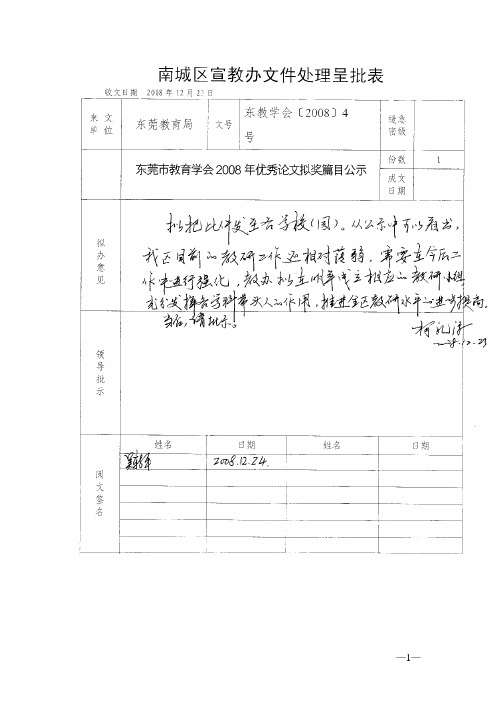 南城区宣教办文件处理呈批表
收文日期 2008年12月23日
来文单位 东莞教育局 文号 东教学会〔2008〕4号 缓急密级
东莞市教育学会2008年优秀论文拟奖篇目公示 份数 1
成文日期
拟办意见
拟把此件发至各学校(园)。从公示中可以看出，
我区目前的教研工作还相对薄弱，需要在今后工
作中进行强化，教办拟在明年成立相应的教研小组
充分发挥各学科带头人的作用，推进全区教研水平的进步提高。
当否，请批示。
08.12.23
领导批示
姓名 日期 姓名 日期
阅文签名
2008.12.24.
—1—